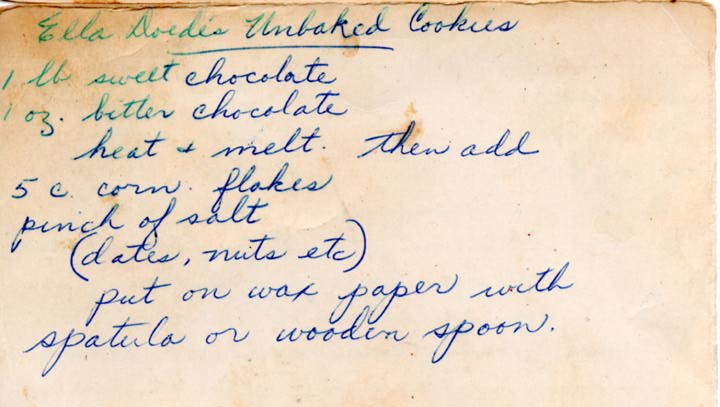 Ella Doede's Unbaked Cookies
1 lb sweet chocolate
1 oz. bitter chocolate
heat + melt. then add
5 c. corn. flakes
pinch of salt
(dates, nuts etc)
put on wax paper with
spatula or wooden spoon.